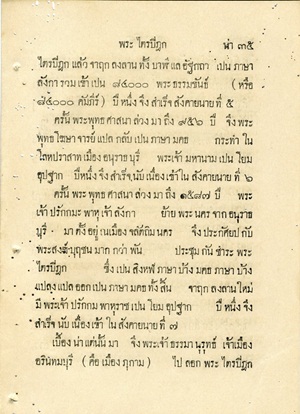 พระ ไตรปิฎก น่า ๓๕
ไตรปิฎก แล้ว จาฤก ลงลาน ทั้ง บาฬี แล อัฐกถา เปน ภาษา
ลังกา รวม เข้า เปน ๘๔๐๐๐ พระ ธรรมขันธ์ (หรือ
๘๔๐๐๐ คัมภีร์) ปี หนึ่ง จึง สำเร็จ สังคายนาย ที่ ๕
ครั้น พระพุทธ สาสนา ล่วง มา ถึง ๙๕๖ ปี จึง พระ
พุทธ โฆษา จารย์ แปล กลับ เปน ภาษา มคธ กระทำ ใน
โลหปราสาท เมือง อนุราธ บุรี พระเจ้า มหานาม เปน โยม
อุปฐาก ปีหนึ่ง จึง สำเร็จ นับ เนื่อง เข้า ใน สังคายนาย ที่ ๖
ครั้น พระ พุทธ สาสนา ล่วง มา ถึง ๑๕๘๗ ปี พระ
เจ้า ปรักกมะ พาหุ เจ้า ลังกา ย้าย พระ นคร จาก อนุราธ
บุรี มา ตั้ง อยู่ ณเมือง จลัตถิม นคร จึง ประกาสิป กับ
พระสงฆ์ บุถุชน มาก กว่า พัน ประชุม กัน ชำระ พระ
ไตรปิฎก ซึ่ง เปน สิงหฬ ภาษา บ้าง มคธ ภาษา บ้าง
แปลง แปล ออก เปน ภาษา มคธ ทั้ง สิ้น จาฤก ลงลาน ใหม่
มี พระเจ้า ปรักกม พาหุราช เปน โยม อุปฐาก ปี หนึ่ง จึง
สำเร็จ นับ เนื่อง เข้า ใน สังคายนาย ที่ ๗
เบื้อง น่า แต่นั้น มา จึง พระเจ้า ธรรมา นุรุทธ์ เจ้าเมือง
อรินททมบุรี (คือ เมือง ภุกาม) ไป ลอก พระ ไตรปิฎก